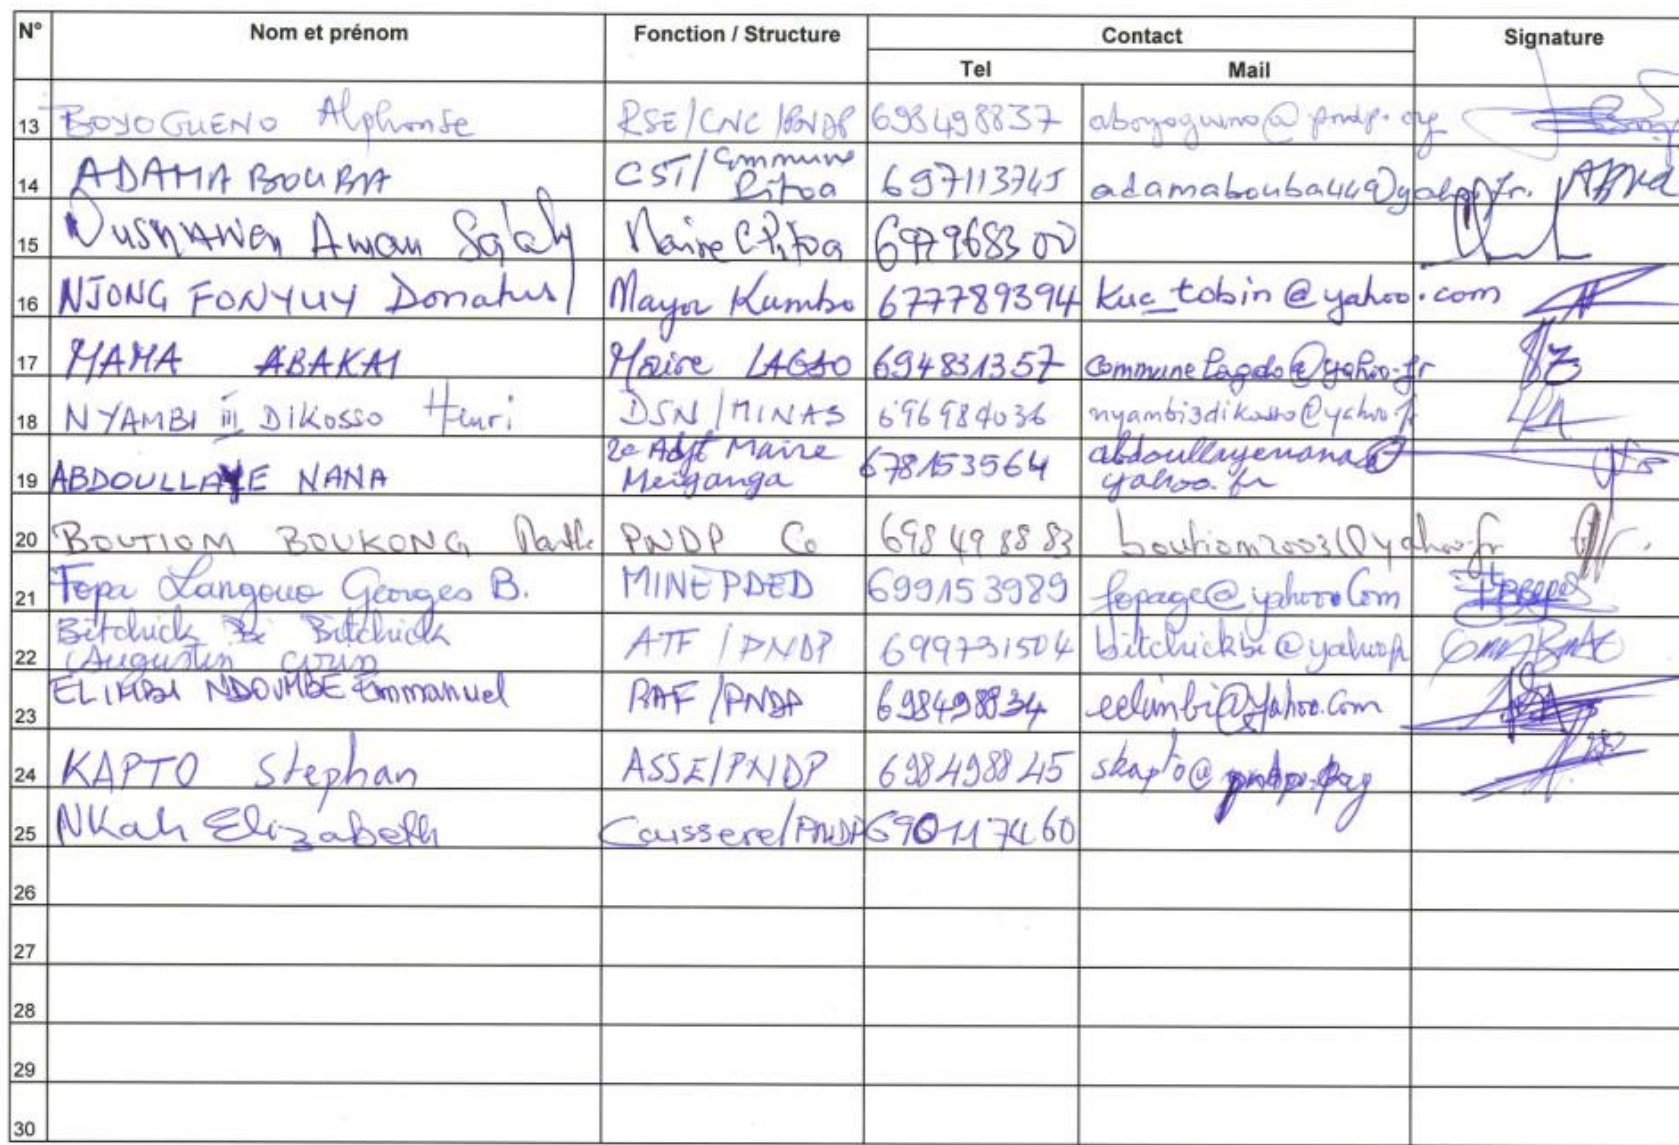 N° Nom et prénom Fonction / Structure Contact Signature
Tel Mail
13 BOYOGUENO Alphonse RSE/CNC/PNDP 698498837 aboyogueno@pndp.org
14 ADAMA BOUBA CST/Commune Pitoa 697113745 adamabouba44@yahoo.fr.
15 Aman Maire C. Pitoa 697968300
16 NJONG FONYUY Donatus Mayor Kumbo 677789394 kuc_tobin@yahoo.com
17 MAMA ABAKAI Maire LAGDO 694831357 communelagdo@yahoo.fr
18 NYAMBI III DIKOSSO Henri DSN/MINAS 696984036 nyambi3dikosso@yahoo.fr
19 ABDOULLAYE NANA 2e Adjt Maire Meiganga 678153564 abdoullayenana@yahoo.fr
20 BOUTIOM BOUKONG PNDP Co 698498883 boutiom2003@yahoo.fr
21 Fopa Langouo Georges B. MINEPDED 699153989 fopage@yahoo.Com
22 Bitchick Bi Bitchick Augustin ATF/PNDP 699731504 bitchickbi@yahoo.fr
23 ELIMBI NDOUMBE Emmanuel RAF/PNDP 698498834 eelimbi@yahoo.com
24 KAPTO Stephan ASSE/PNDP 698498845 skapto@pndp.org
25 NKah Elizabeth 690117460
26
27
28
29
30